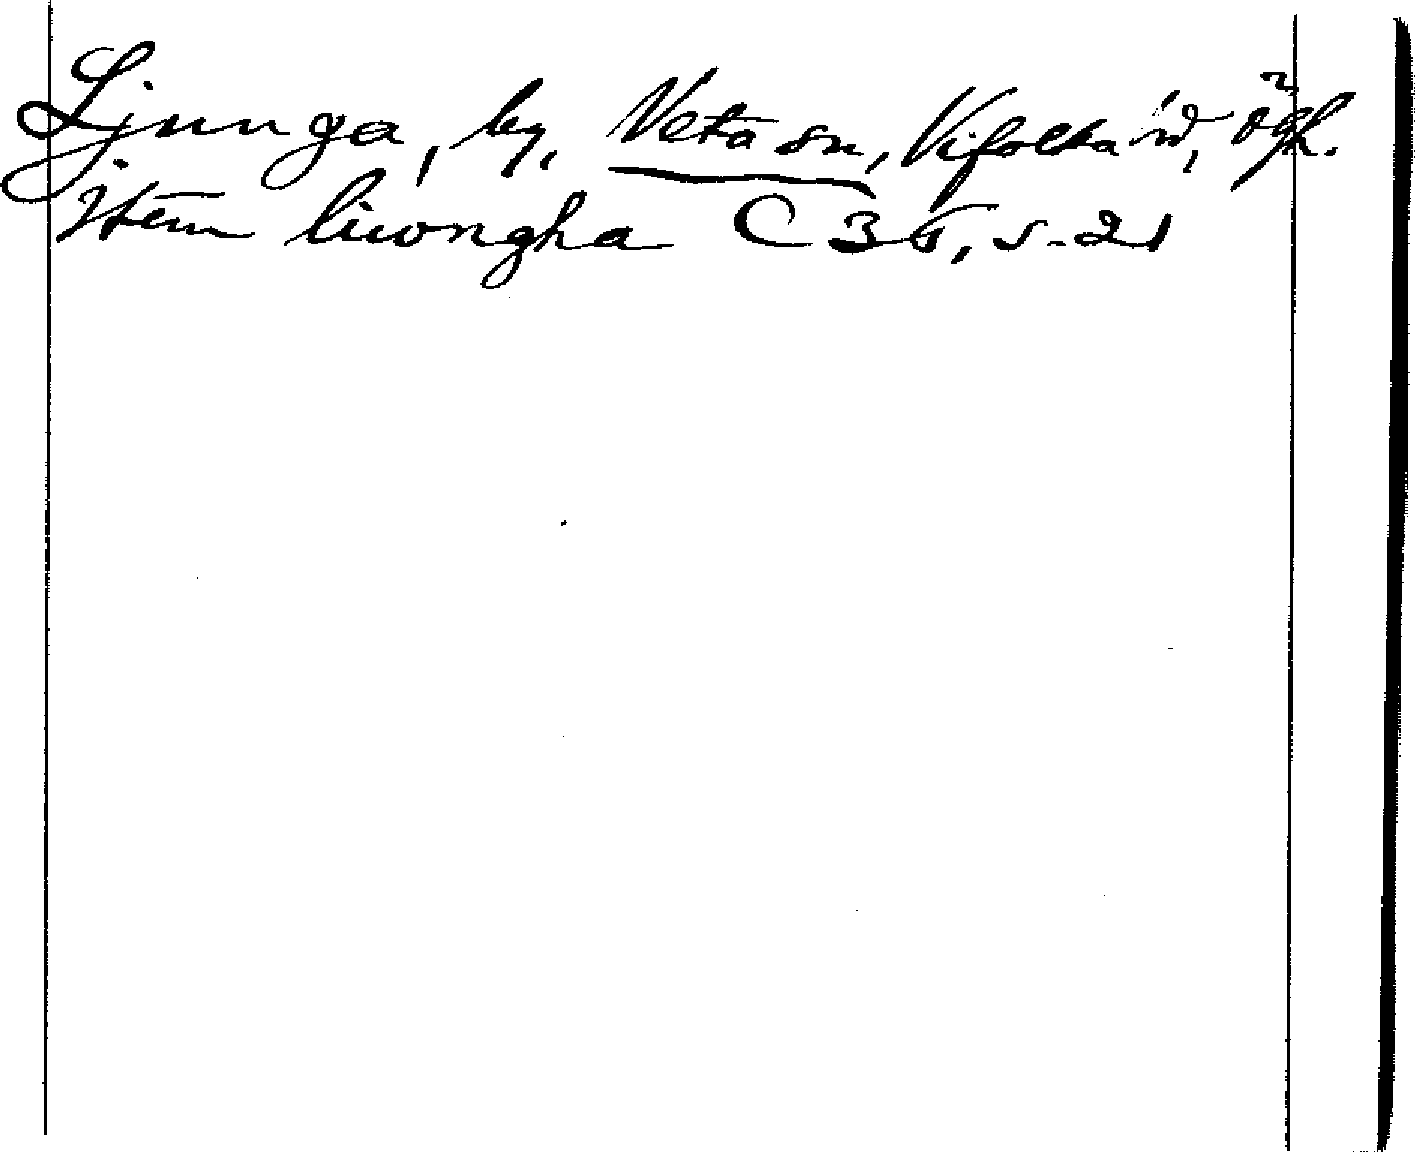 Ljunga, by, Veta sn, Vifolka hd, Ögl.
Item liwongha C 35, s. 21